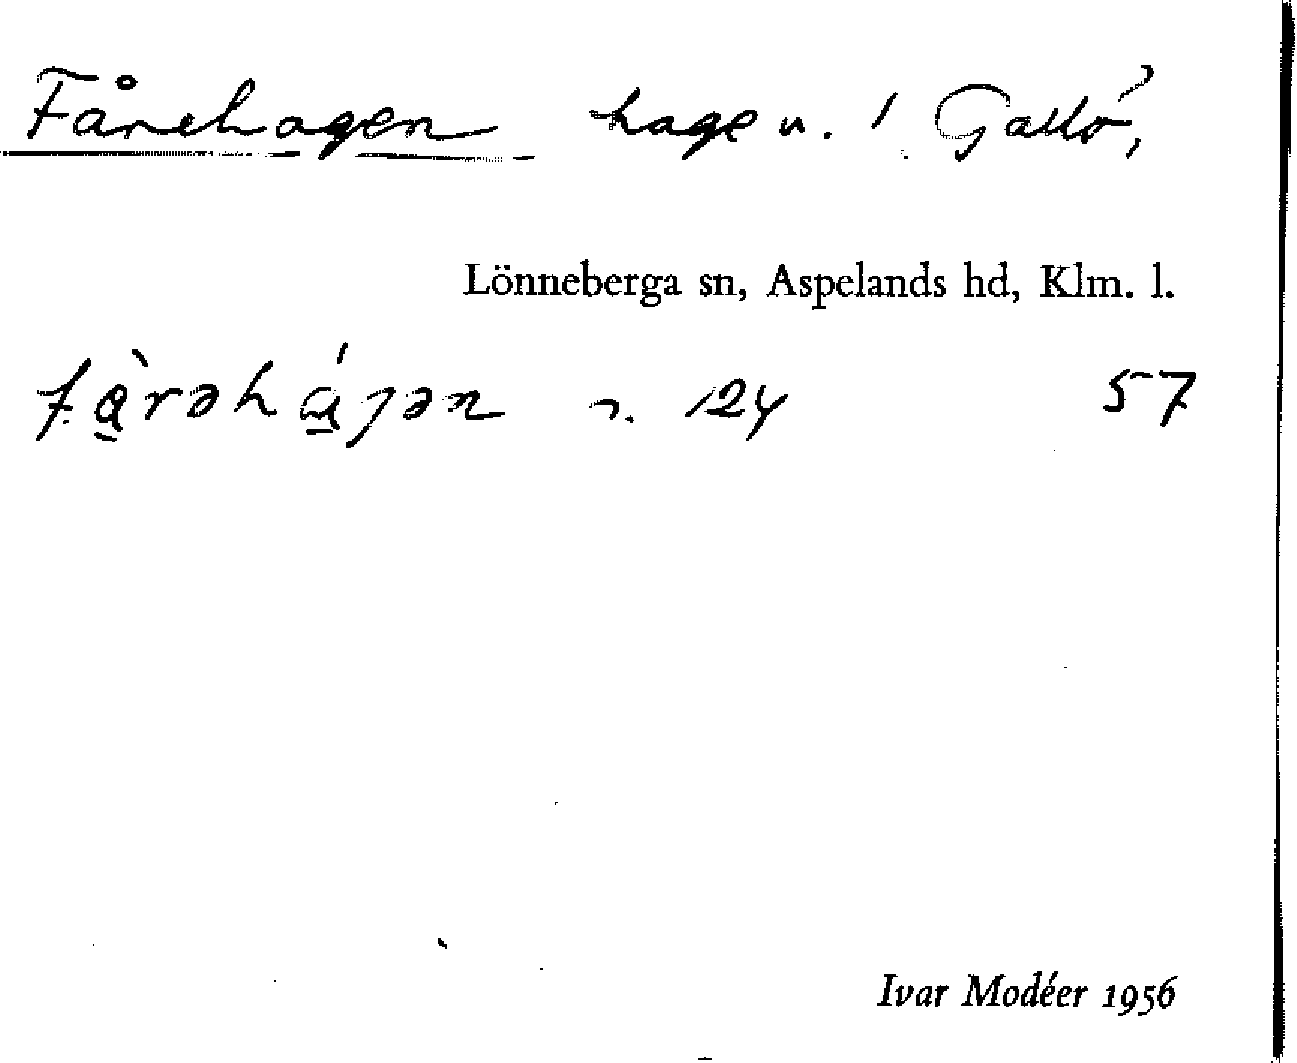 Fårehagen hage u. 1 Gallö,
Lönneberga sn, Aspelands hd, Klm. l.
fàrəháγən n. 124 57
Ivar Modéer 1956